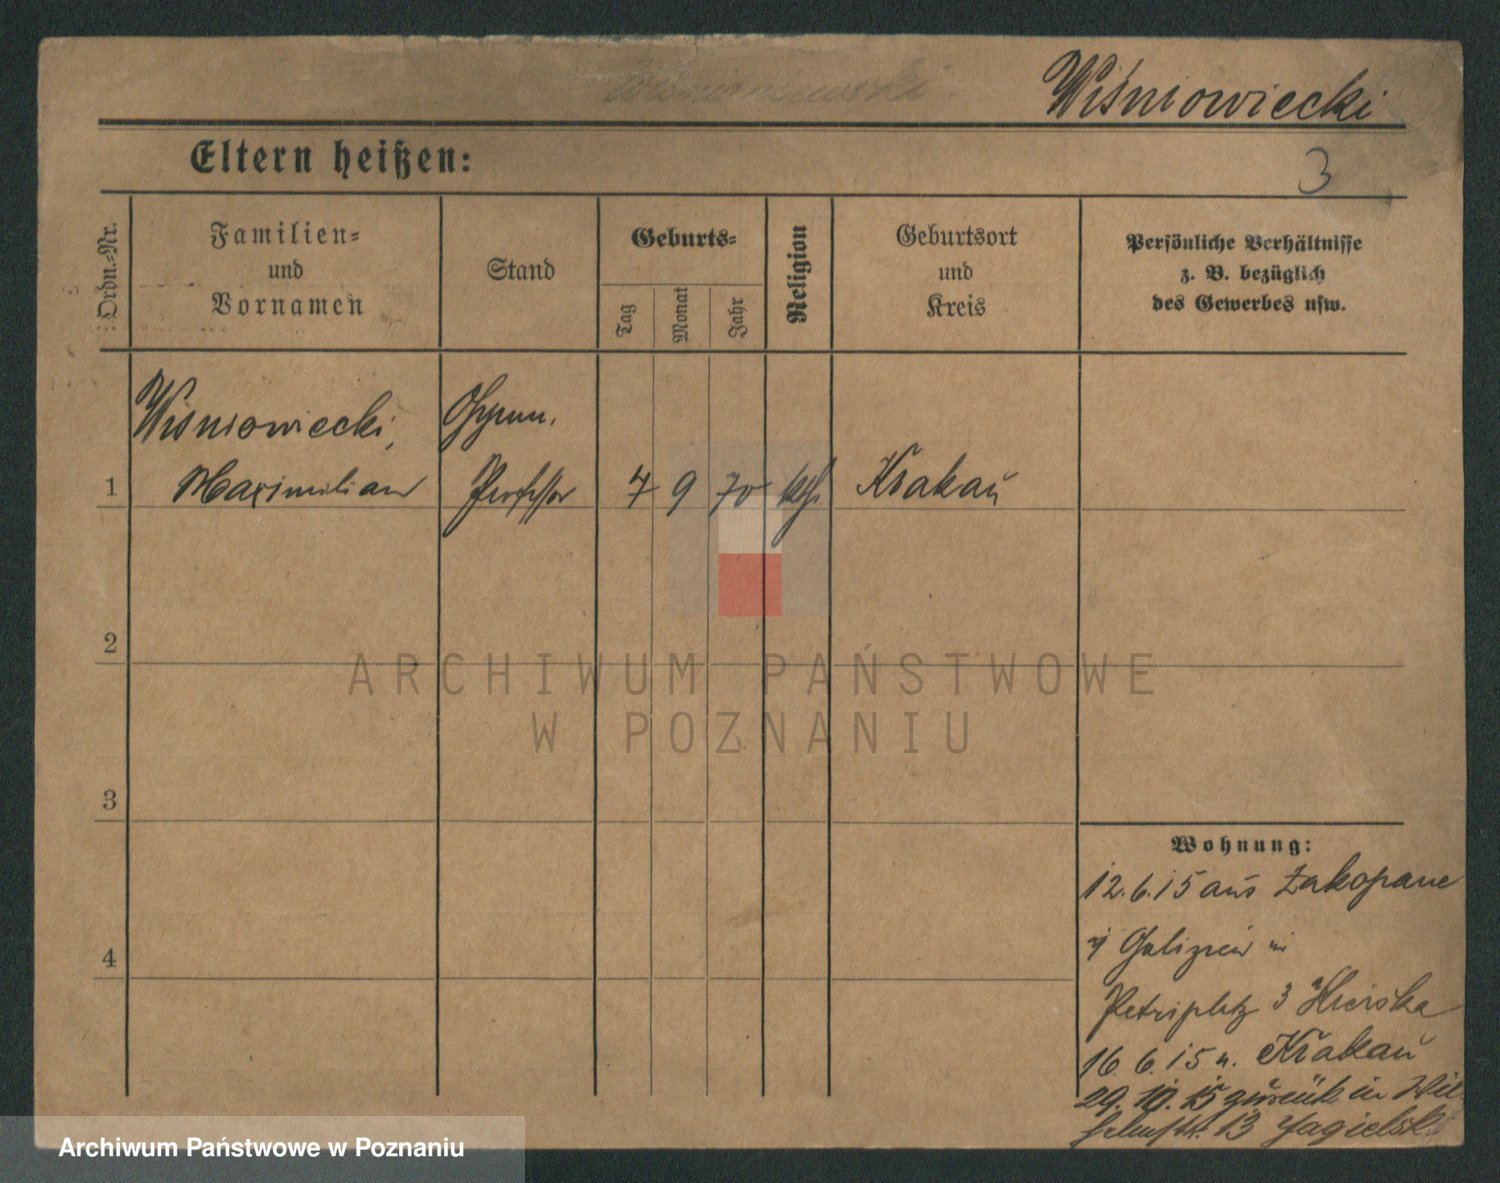 Wiśniowiecki
Eltern heißen:
3
Ordn.-Nr.
Familien-
und
Vornamen
Stand
Geburts-
Tag
Monat
Jahr
Religion
Geburtsort
und
Kreis
Persönliche Verhältnisse
z. B. bezüglich
des Gewerbes usw.
Wiśniowiecki,
Gymn.
1 Maximilian Professor 7 9 70 kth. Krakau
2
3
4
ARCHIWUM PAŃSTWOWE
W POZNANIU
Wohnung:
12.6.15 aus Zakopane
i/ Galizien in
Petriplatz 3
16.6.15 n. Krakau
29.10.15 zurück in Wil-
helmstr. 13 Jagielski
Archiwum Państwowe w Poznaniu